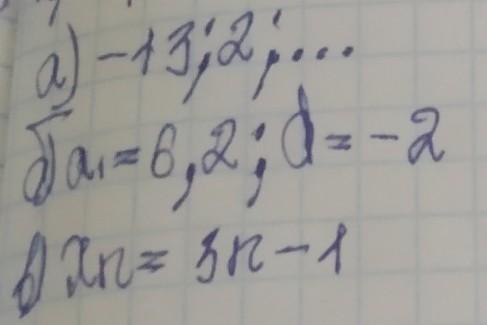 а) -13; 2; ...
б) a₁ = 6,2; d = -2
в) xn = 3n - 1